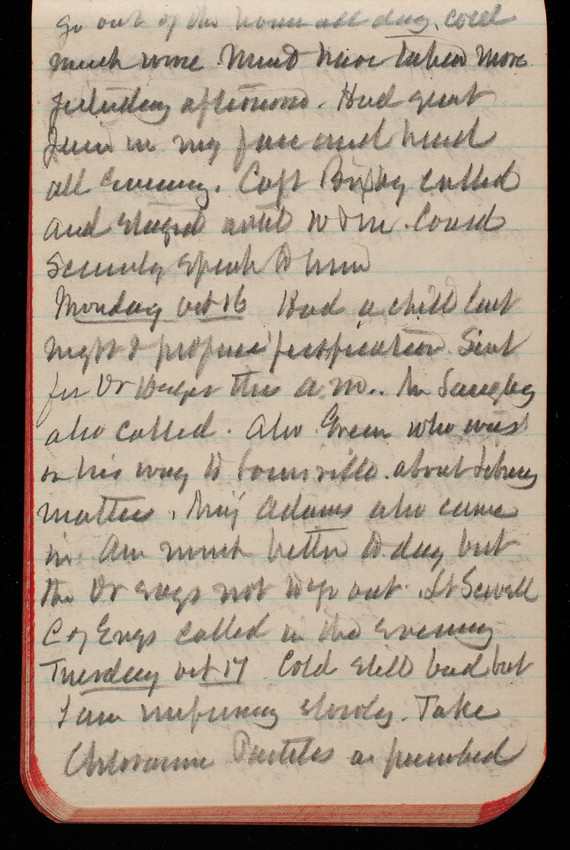 go out of the house all day, cold
much worse Must have taken more
yesterday afternoon. Had great
pain in my face and head
all evening. Capt Bixby called
and stayed until 10 P.M. Could
scarcely speak to him
Monday Oct 16 Had a chill last
night & profuse perspiration Sent
for Dr this a.m.. Mr
also called. Also Green who was
on his way to Louisville about
matters, Maj Adams also came
in. Am much better to day but
the Dr says not to go out. Lt Sewell
C of Engs called in the evening
Tuesday Oct 17 Cold still bad but
I am improving slowly. Take
Pastiles as prescribed